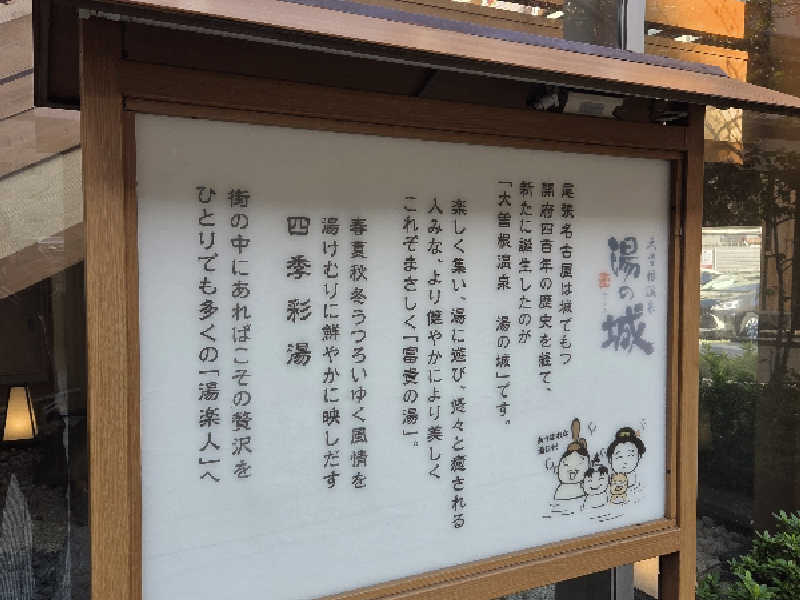 大曽根温泉
湯の城
尾張名古屋は城でもつ
開府四百年の歴史を経て、
新たに誕生したのが
「大曽根温泉　湯の城」です。
楽しく集い、湯に遊び、悠々と癒される
人みな、より健やかにより美しく
これぞまさしく「富貴の湯」。
春夏秋冬うつろいゆく風情を
湯けむりに鮮やかに映しだす
四季彩湯
街の中にあればこその贅沢を
ひとりでも多くの「湯楽人」へ